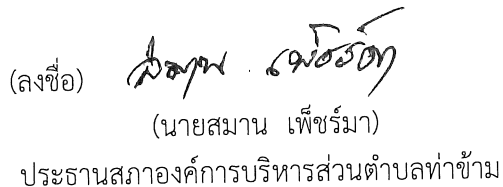 (ลงชื่อ) สมาน เพ็ชร์มา
(นายสมาน เพ็ชร์มา)
ประธานสภาองค์การบริหารส่วนตำบลท่าข้าม